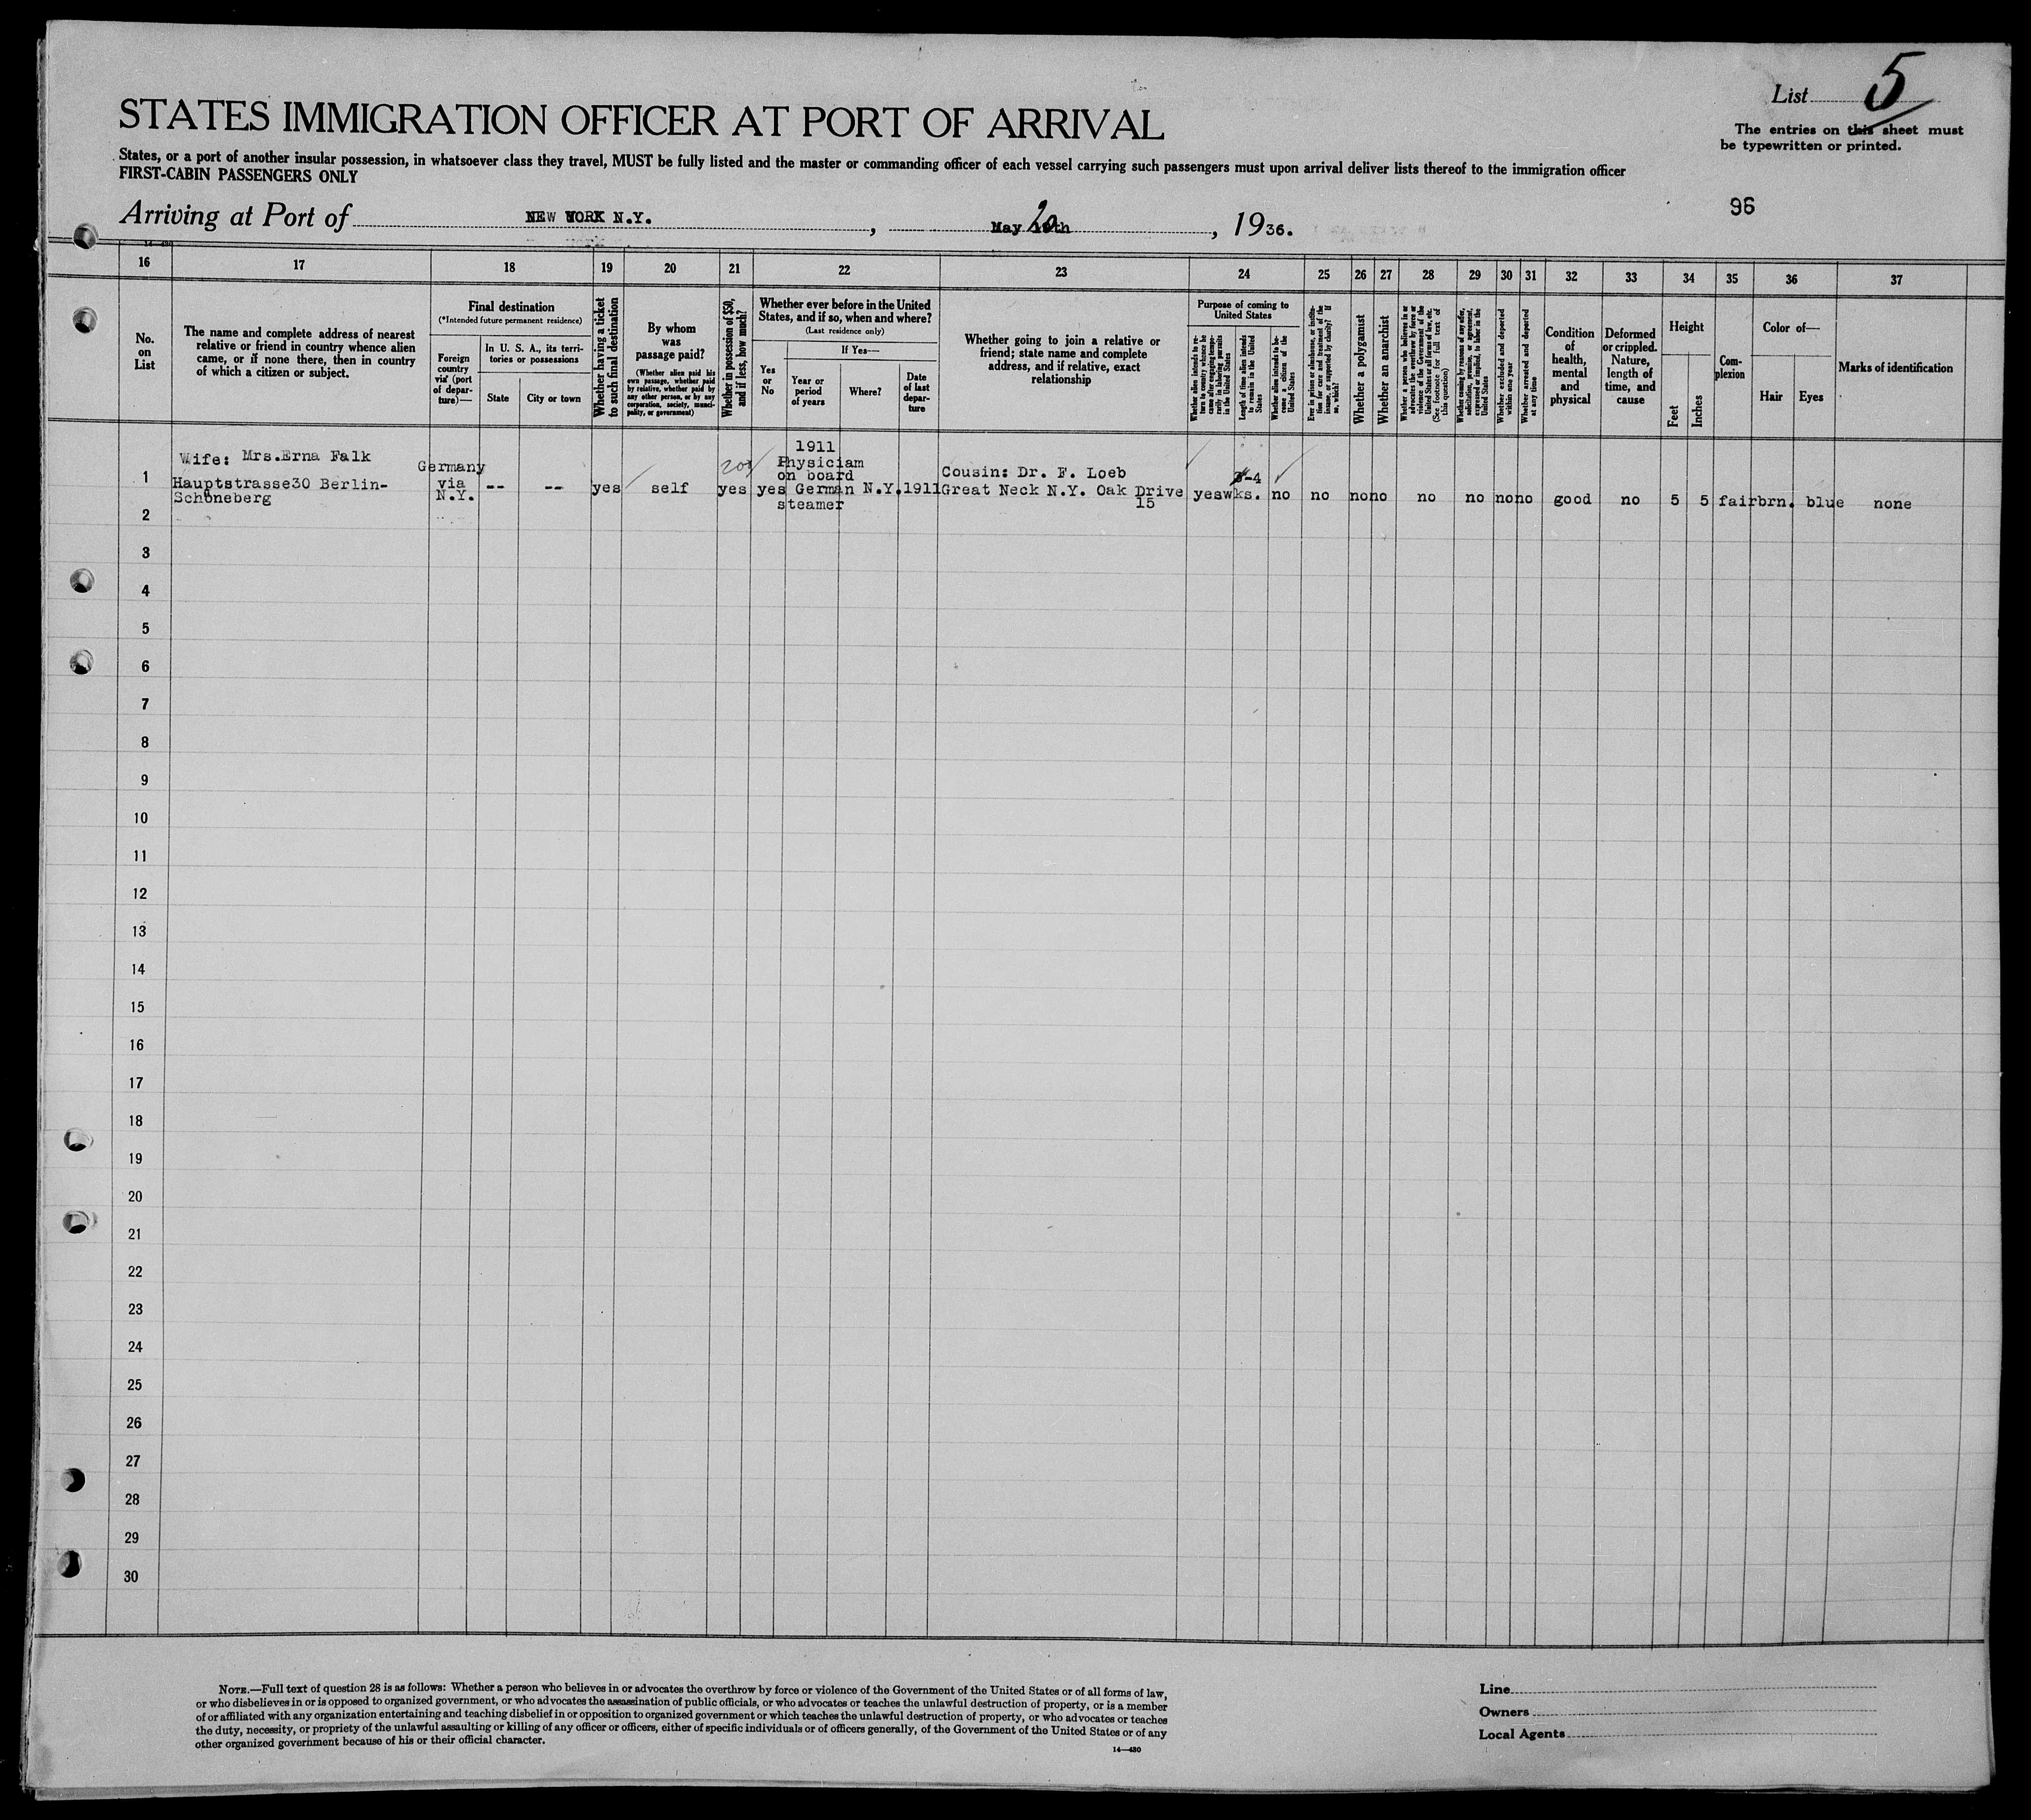 List 5
STATES IMMIGRATION OFFICER AT PORT OF ARRIVAL
The entries on this sheet must
be typewritten or printed.
States, or a port of another insular possession, in whatsoever class they travel, MUST be fully listed and the master or commanding officer of each vessel carrying such passengers must upon arrival deliver lists thereof to the immigration officer
FIRST-CABIN PASSENGERS ONLY
96
Arriving at Port of NEW YORK N.Y. , May 20 th , 1936.
16 17 18 19 20 21 22 23 24 25 26 27 28 29 30 31 32 33 34 35 36 37
No.
on
List
The name and complete address of nearest
relative or friend in country whence alien
came, or if none there, then in country
of which a citizen or subject.
Final destination
(*Intended future permanent residence)
Foreign
country
via (port
of depar-
ture)—
In U. S. A., its terri-
tories or possessions
State
City or town
Whether having a ticket
to such final destination
By whom
was
passage paid?
(Whether alien paid his
own passage, whether paid
by relative, whether paid by
any other person, or by any
corporation, society, munici-
pality, or government)
Whether in possession of $50,
and if less, how much?
Whether ever before in the United
States, and if so, when and where?
(Last residence only)
Yes
or
No
If Yes—
Year or
period
of years
Where?
Date
of last
depar-
ture
Whether going to join a relative or
friend; state name and complete
address, and if relative, exact
relationship
Purpose of coming to
United States
Whether alien intends to re-
turn to country whence he
came after engaging tempo-
rarily in laboring pursuits
in the United States
Length of time alien intends
to remain in the United
States
Whether alien intends to be-
come a citizen of the
United States
Ever in prison or almshouse, or institu-
tion for care and treatment of the
insane, or supported by charity? If
so, which?
Whether a polygamist
Whether an anarchist
Whether a person who believes in or
advocates the overthrow by force or
violence of the Government of the
United States or all forms of law, etc.
(See footnote for full text of
this question)
Whether coming by reasons of any offer,
solicitation, promise, or agreement,
expressed or implied, to labor in the
United States
Whether excluded and deported
within one year
Whether arrested and deported
at any time
Condition
of
health,
mental
and
physical
Deformed
or crippled.
Nature,
length of
time, and
cause
Height
Feet
Inches
Com-
plexion
Color of—
Hair
Eyes
Marks of identification
1
Wife: Mrs.Erna Falk
Hauptstrasse30 Berlin-
Schöneberg
Germany
via
N.Y.
-- -- yes self yes yes
1911
Physiciam
on board
German N.Y.1911
steamer
Cousin: Dr. F. Loeb
Great Neck N.Y. Oak Drive
15
yes 3-4
wks. no no no no no no no no good no 5 5 fair brn. blue none
2
3
4
5
6
7
8
9
10
11
12
13
14
15
16
17
18
19
20
21
22
23
24
25
26
27
28
29
30
NOTE.—Full text of question 28 is as follows: Whether a person who believes in or advocates the overthrow by force or violence of the Government of the United States or of all forms of law,
or who disbelieves in or is opposed to organized government, or who advocates the assassination of public officials, or who advocates or teaches the unlawful destruction of property, or is a member
of or affiliated with any organization entertaining and teaching disbelief in or opposition to organized government or which teaches the unlawful destruction of property, or who advocates or teaches
the duty, necessity, or propriety of the unlawful assaulting or killing of any officer or officers, either of specific individuals or of officers generally, of the Government of the United States or of any
other organized government because of his or their official character.
14—430
Line
Owners
Local Agents